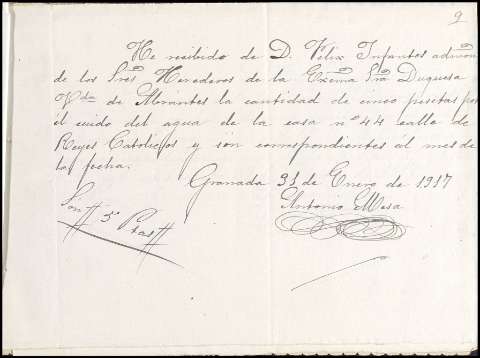 9
He recibido de D. Felix Infantes admor
de los Sres Herederos de la Exema Sra Duquesa
Vda de Abrantes la cantidad de cinco pesetas por
el cuido del agua de la casa nº 44 calle de
Reyes Catolicos y son correspondientes al mes de
la fecha.
Granada 31 de Enero de 1917
Antonio Mesa
Son # 5 Ptas #